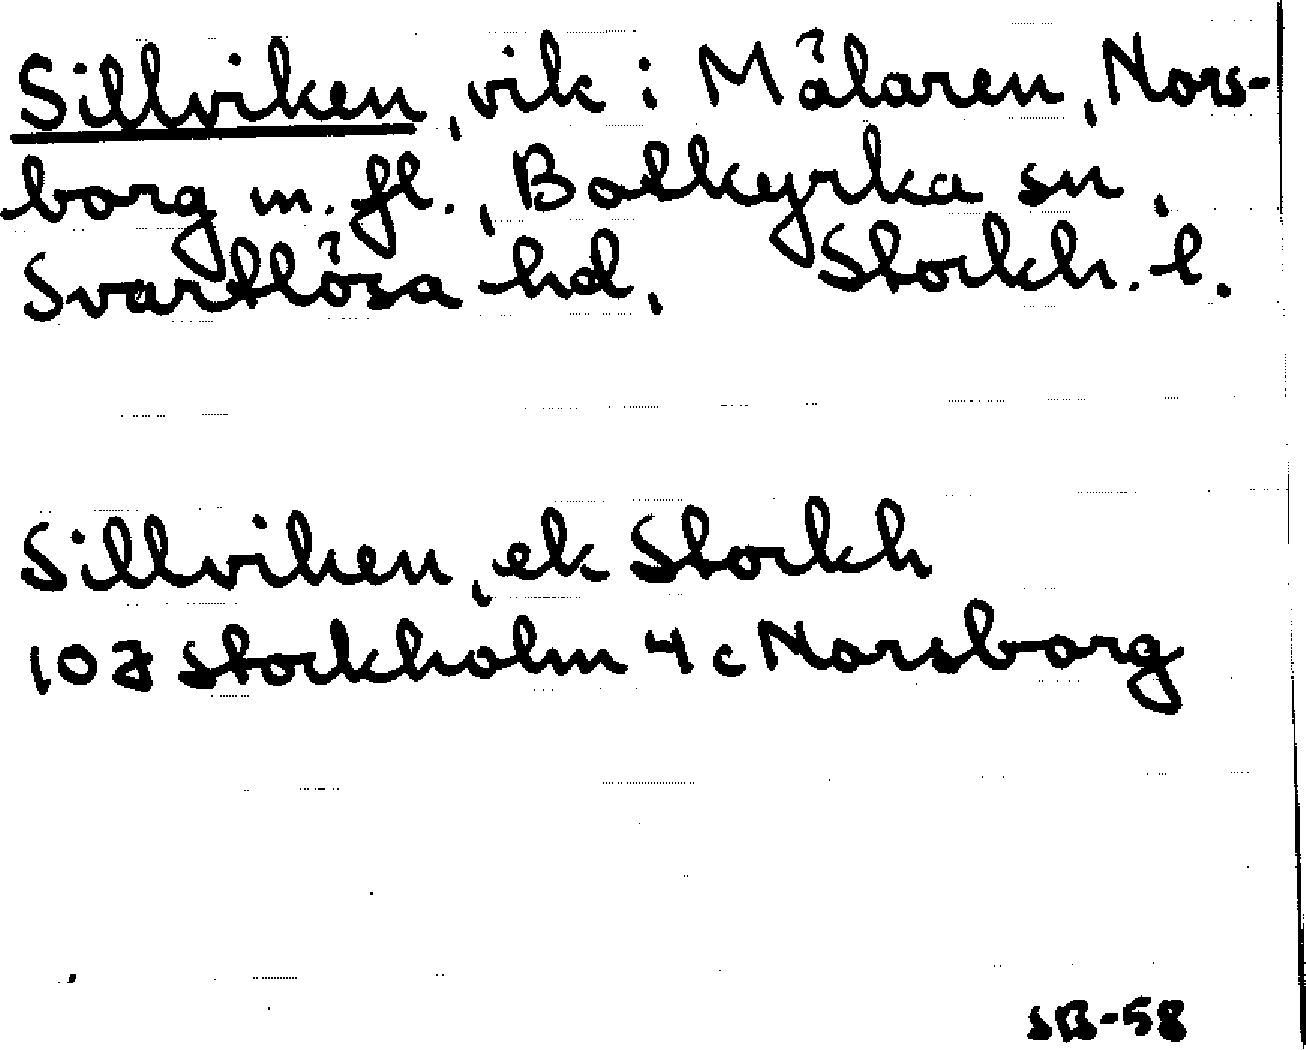 Sillviken, vik i Mälaren, Nors-
borg m. fl., Botkyrka sn,
Svartlösa hd, Stockh. l.
Sillviken, ek Stockh
10J Stockholm 4c Norsborg
SB-58